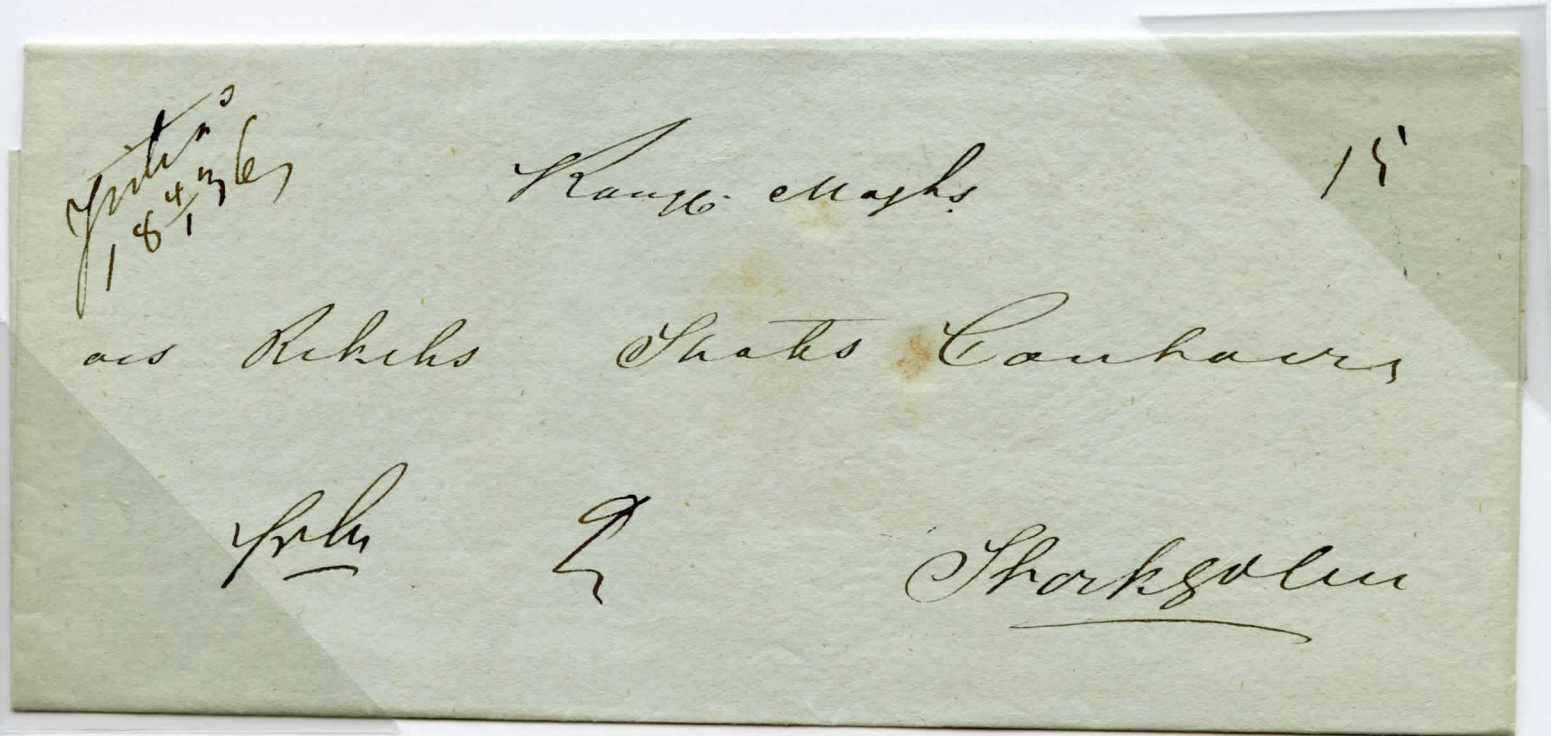 18 4/1 36
Kongl. Majts.
15
och Rikets Stats Contoir,
frbr 2
Stockholm